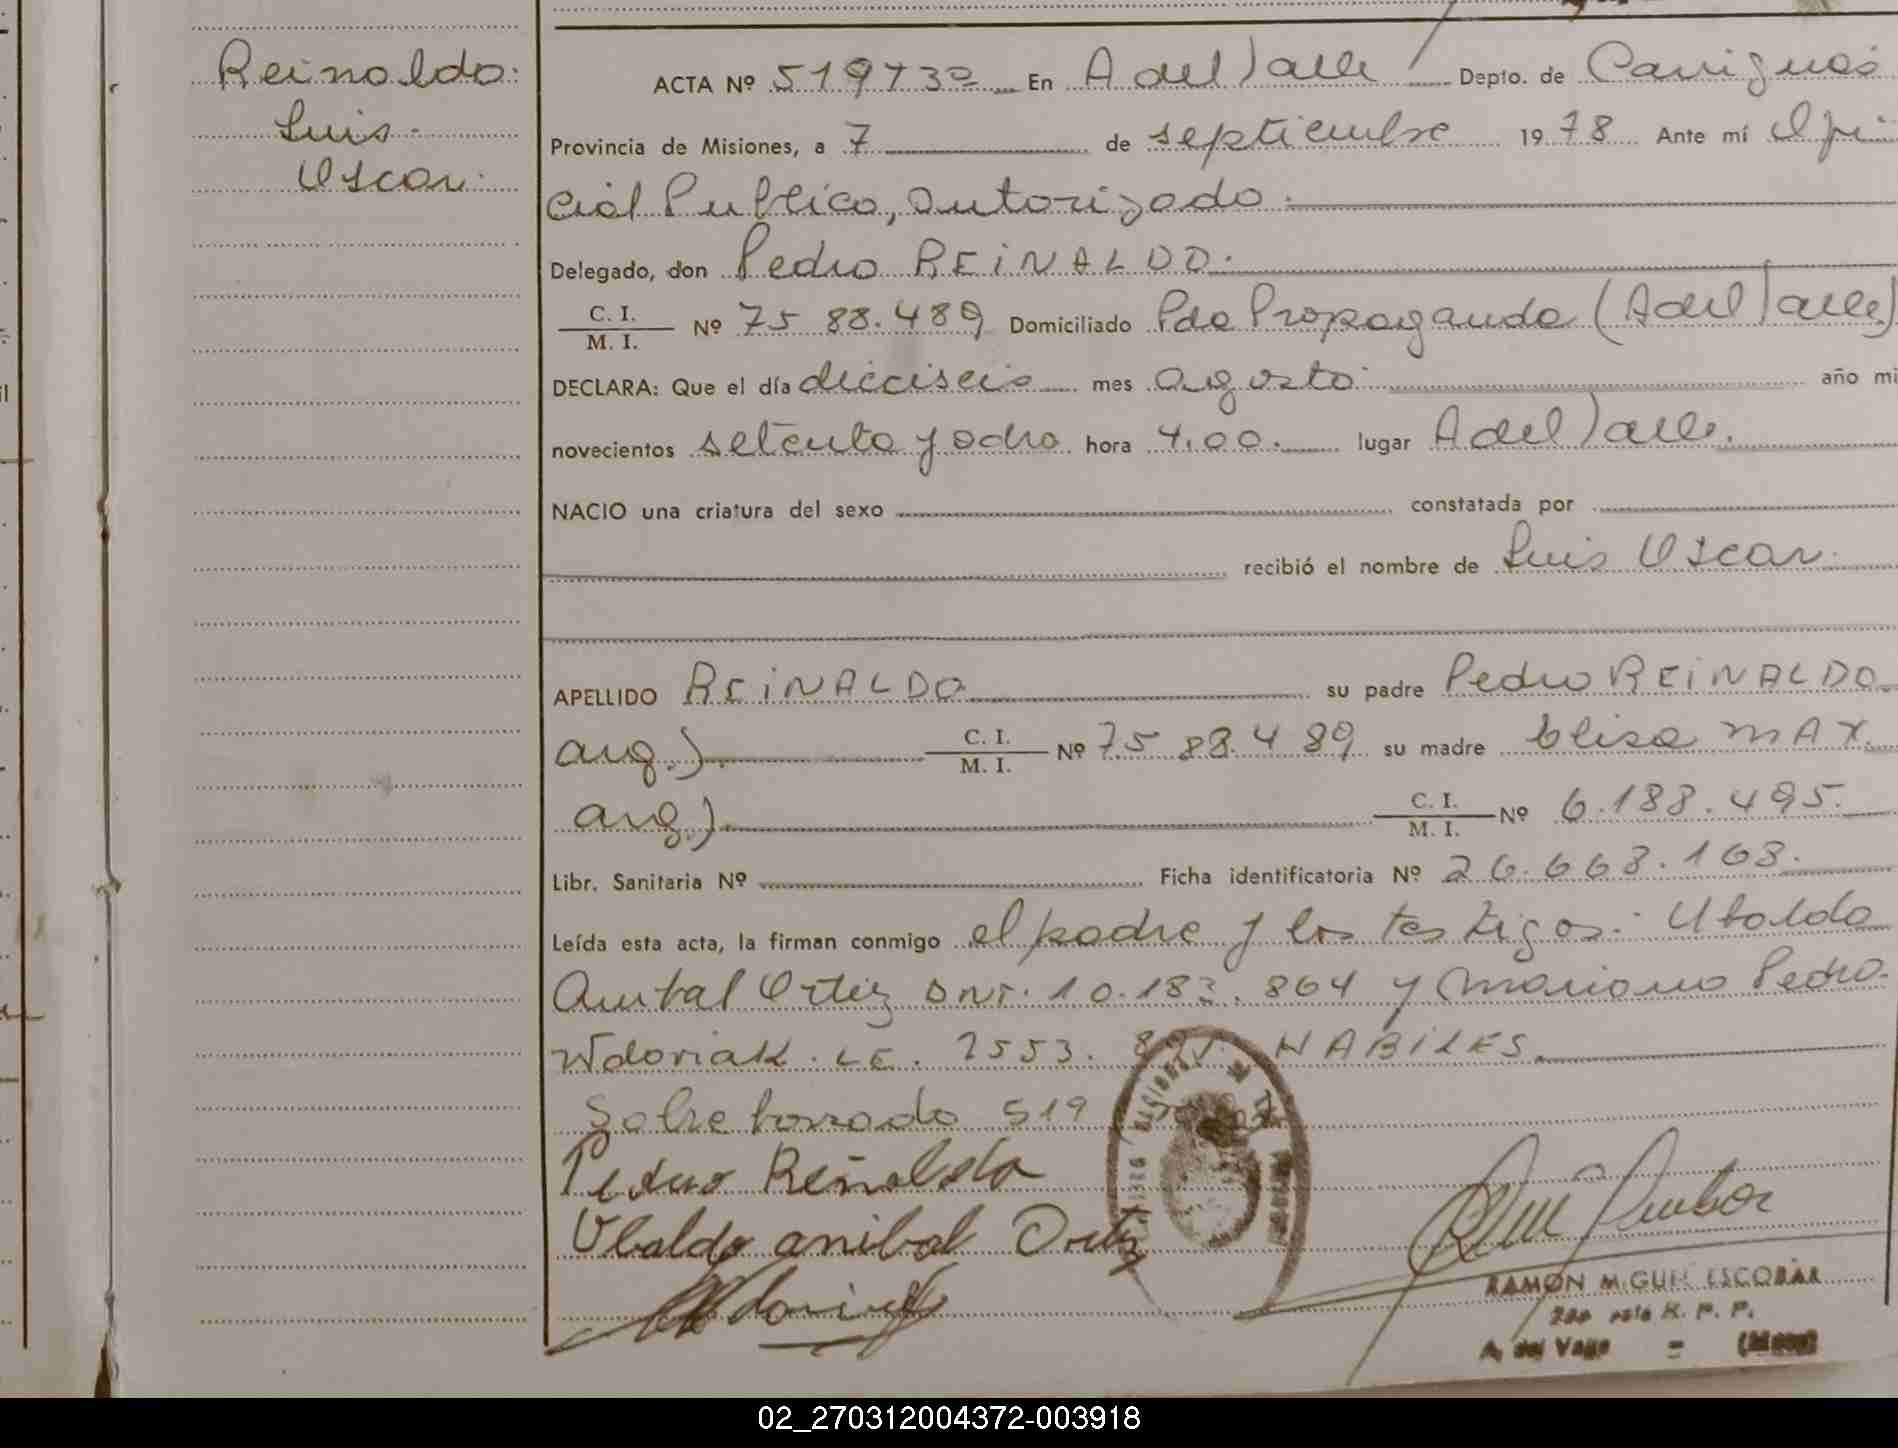 Reinaldo
Luis
Oscar.
ACTA Nº 519T3º En A del Valle Depto. de Cainguás
Provincia de Misiones, a 7 de septiembre 1978 Ante mí Ofi
cial Publico, autorizado.
Delegado, don Pedro REINALDO.
C. I.
M. I. Nº 7588.489 Domiciliado Pdo Propaganda (A del Valle)
DECLARA: Que el día dieciseis mes agosto año mi
novecientos setenta y ocho hora 4.00. lugar A del Valle.
NACIO una criatura del sexo constatada por
recibió el nombre de Luis Oscar.
APELLIDO REINALDO su padre Pedro REINALDO
arg.) C. I.
M. I. Nº 7588.489 su madre Elisa MAX
arg.) C. I.
M. I. Nº 6.188.495.
Libr. Sanitaria Nº Ficha identificatoria Nº 26.668.168.
Leída esta acta, la firman conmigo el padre y los testigos: Ubaldo
Anibal Ortiz DNI. 10.183.864 y Mariano Pedro
Wdoviak. LE. 7553. HABILES.
Sobre borrado 519
Pedro Reinaldo
Ubaldo anibal Ortiz
RAMON MIGUEL ESCOBAR
A. del Valle - (Mnes)
02_270312004372-003918